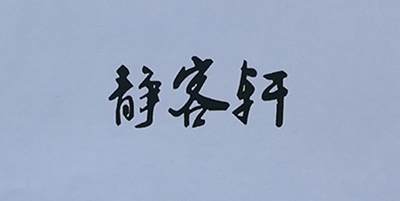 静客轩